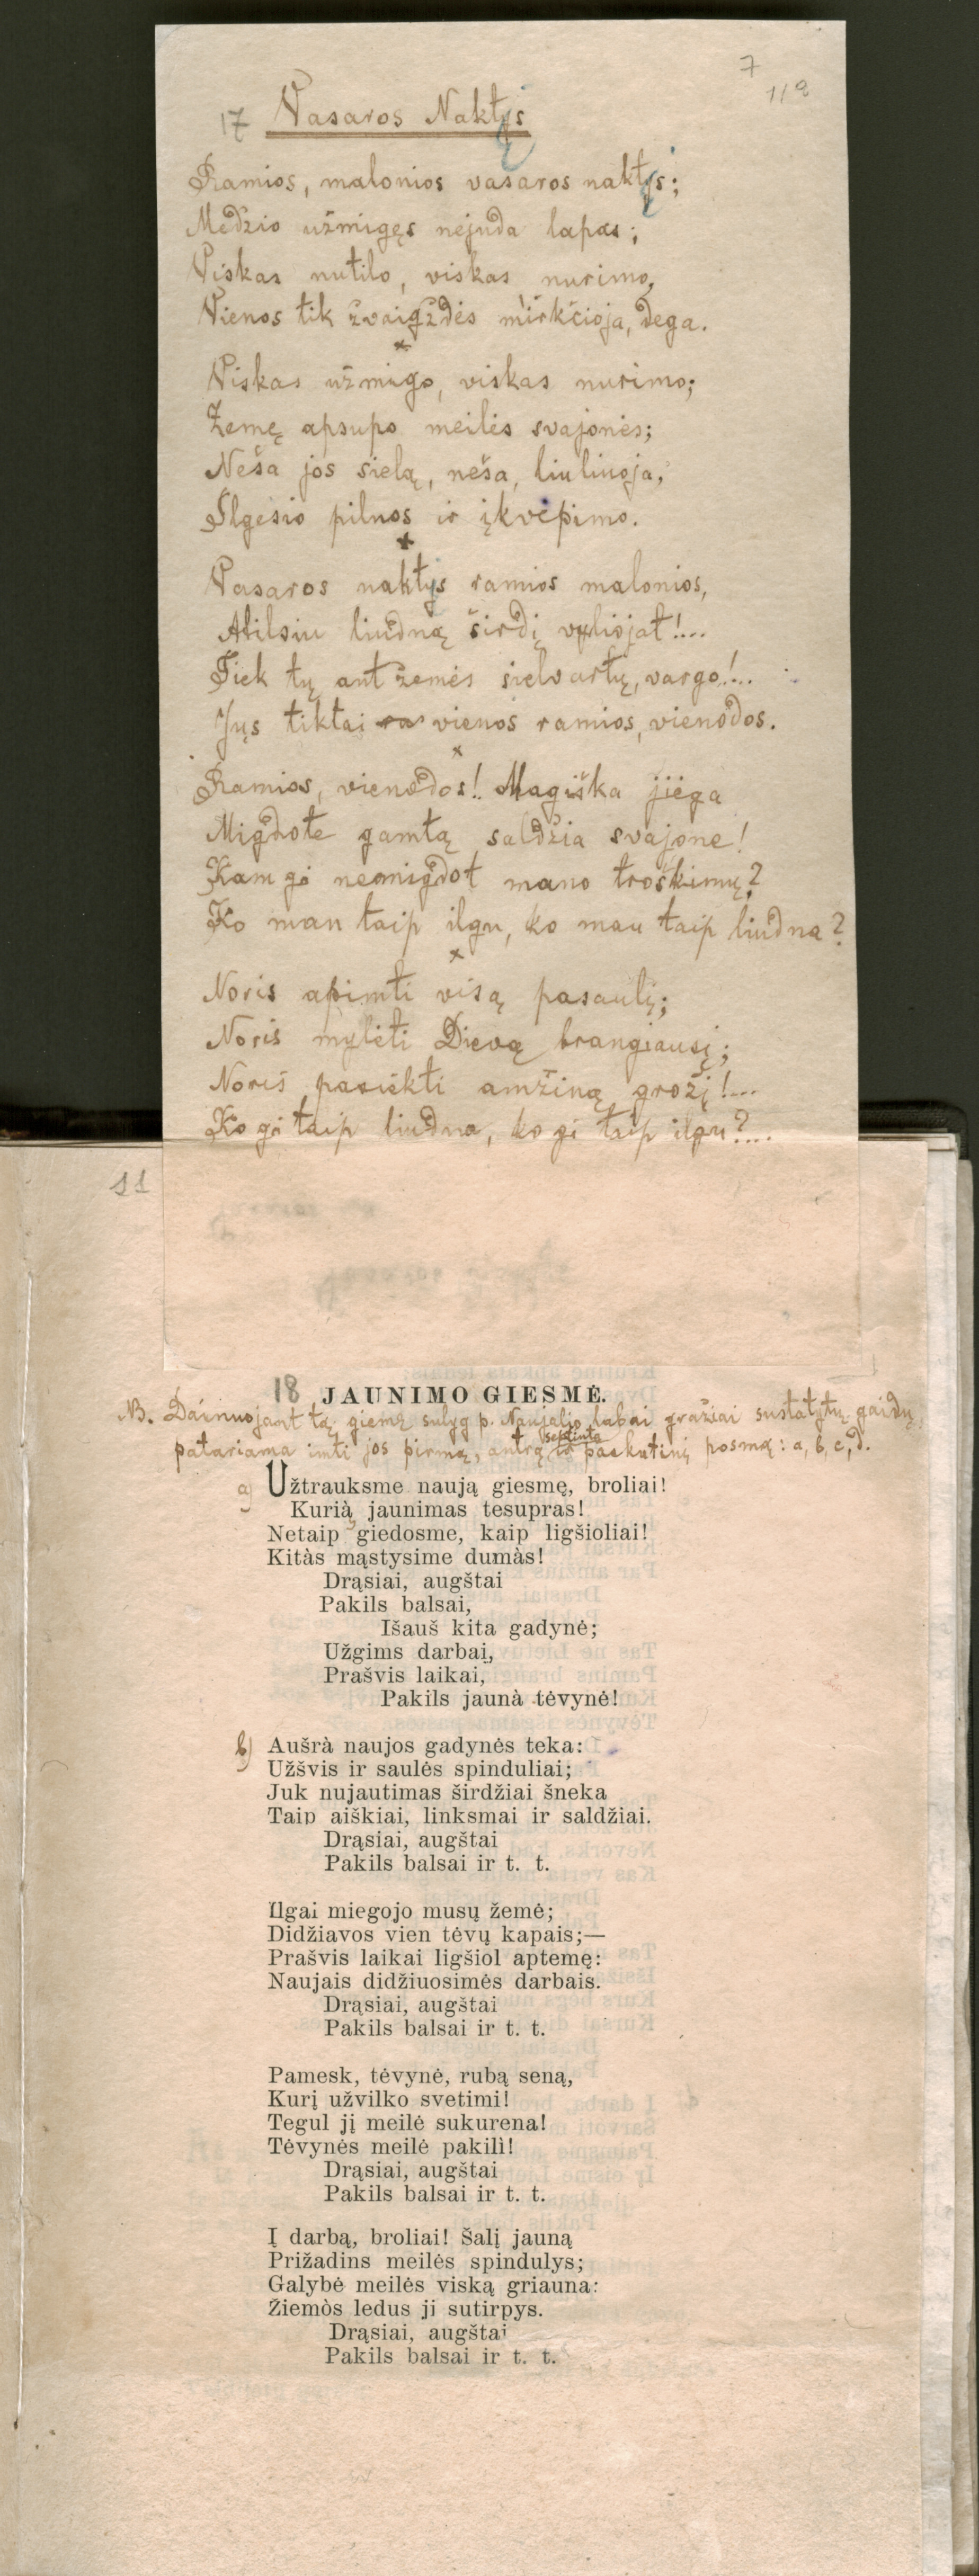 7
112
17 Vasaros Naktįs
Ramios, malonios vasaros naktįs;
Medžio užmigęs nejuda lapas;
Viskas nutilo, viskas nurimo,
Vienos tik žvaigždės mirkčioja, dega.
×
Viskas užmigo, viskas nurimo;
Žemę apsupo meilės svajonės;
Neša jos sielą, neša, liuliuoja,
Ilgesio pilnos ir įkvėpimo.
×
Vasaros naktįs ramios malonios,
Atilsiu liudną širdį viliojat!...
Tiek tų ant žemės sielvartų, vargo!...
Jųs tiktai vienos ramios, vienodos.
×
Ramios, vienodos!.. Magiška jiėga
Migdote gamtą saldžia svajone!
Kam gi nemigdot mano troškimų?
Ko man taip ilgu, ko man taip liudna?
×
Noris apimti visą pasaulį;
Noris mylėti Dievą brangiausį;
Noris pasiekti amžiną grožį!...
Ko gi taip liudna, ko gi taip ilgu?...
11
18 JAUNIMO GIESMĖ.
NB. Dainuojant tą giesmę sulyg p. Naujalio labai gražiai sustatytų gaidų,
septintą
patariama imti jos pirmą, antrą ir paskutinį posmą: a, b, c, d.
a) Užtrauksme naują giesmę, broliai!
Kurią̀ jaunimas tesupras!
Netaip giedosme, kaip ligšioliai!
Kitàs mąstysime dumàs!
Drąsiai, augštai
Pakils balsai,
Išauš kita gadynė;
Užgims darbai,
Prašvis laikai,
Pakils jaunà tėvynė!
b) Aušrà naujos gadynės teka:
Užšvis ir saulės spinduliai;
Juk nujautimas širdžiai šneka
Taip aiškiai, linksmai ir saldžiai.
Drąsiai, augštai
Pakils balsai ir t. t.
Ilgai miegojo musų žemė;
Didžiavos vien tėvų kapais;—
Prašvis laikai ligšiol aptemę:
Naujais didžiuosimės darbais.
Drąsiai, augštai
Pakils balsai ir t. t.
Pamesk, tėvynė, rubą seną,
Kurį užvilko svetimi!
Tegul jį meilė sukurena!
Tėvynės meilė pakilì!
Drąsiai, augštai
Pakils balsai ir t. t.
Į darbą, broliai! Šalį jauną
Prižadins meilės spindulys;
Galybė meilės viską griauna:
Žiemòs ledus ji sutirpys.
Drąsiai, augštai
Pakils balsai ir t. t.